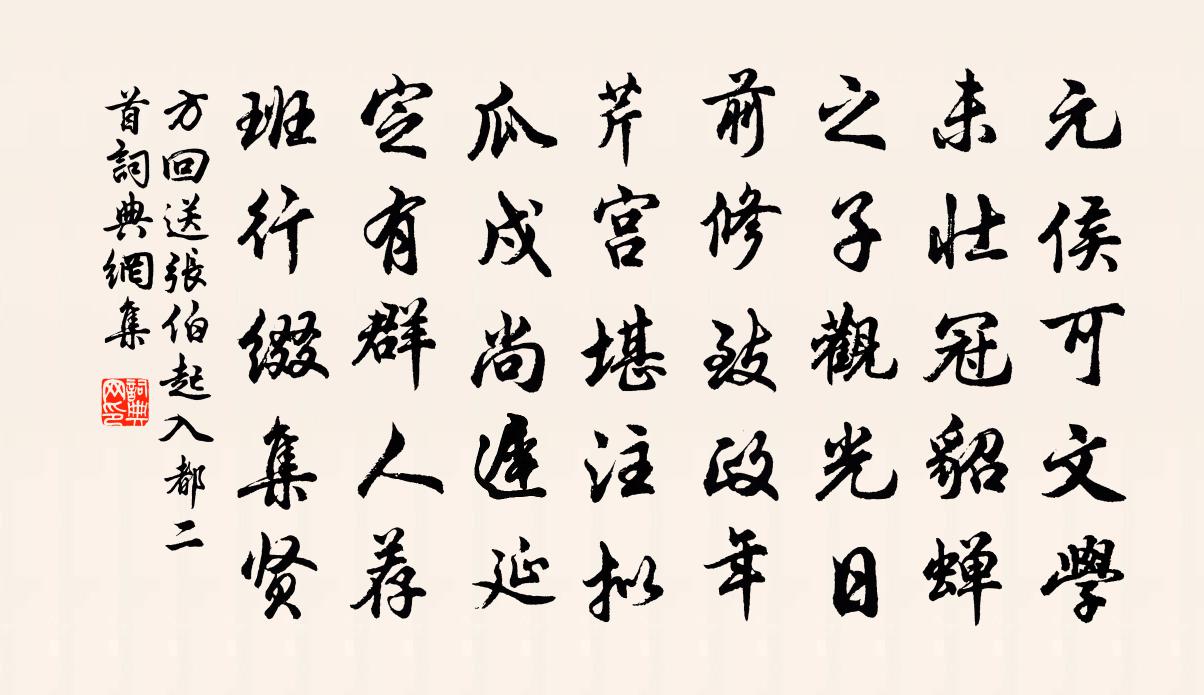 元侯可文學
未壯冠貂蟬
之子觀光日
前修致政年
芹宮堪注拟
瓜戍尚遲延
定有群人荐
班行缀集贤
方回送張伯起入都二
首詞典網集
詞典
网印